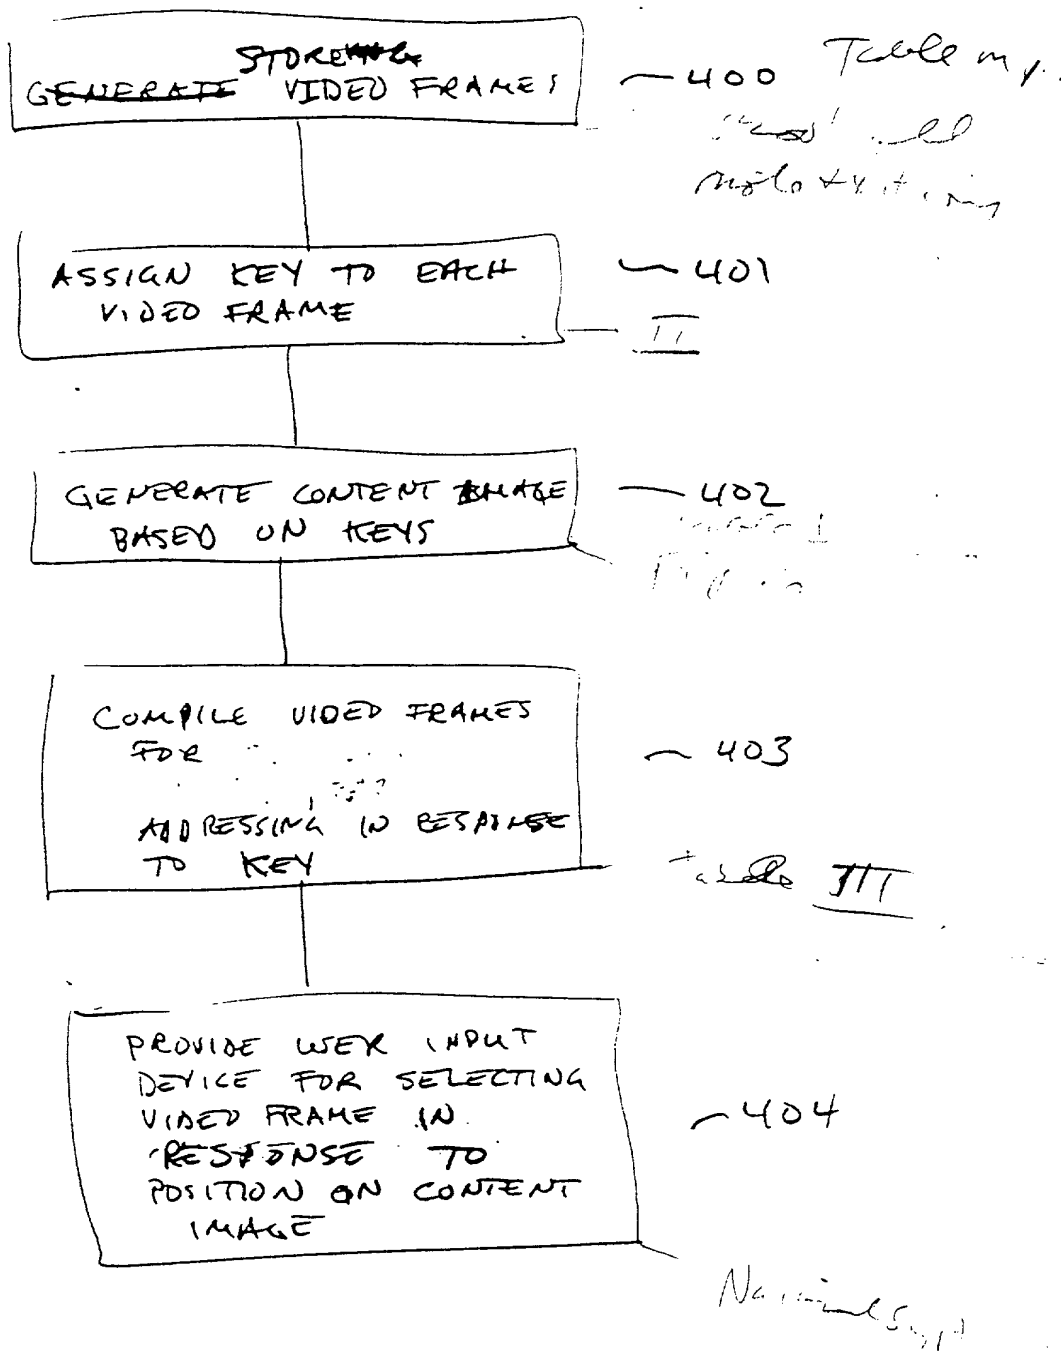 STORE
GENERATE VIDEO FRAMES
400
Table
ASSIGN KEY TO EACH
VIDEO FRAME
401
II
GENERATE CONTENT IMAGE
BASED ON KEYS
402
COMPILE VIDEO FRAMES
FOR
403
ADDRESSING IN RESPONSE
TO KEY
table III
PROVIDE USER INPUT
DEVICE FOR SELECTING
VIDEO FRAME IN
RESPONSE TO
POSITION ON CONTENT
IMAGE
404